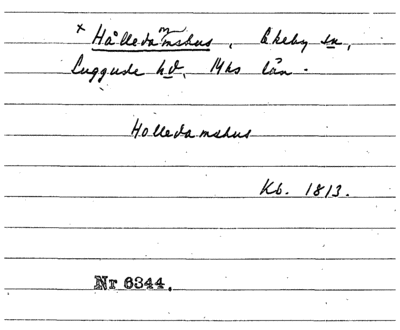 x Hålledammshus, Ekeby sn,
Luggude hd, Mhs län.
Holledamshus
Kb. 1813.
Nr 6344.